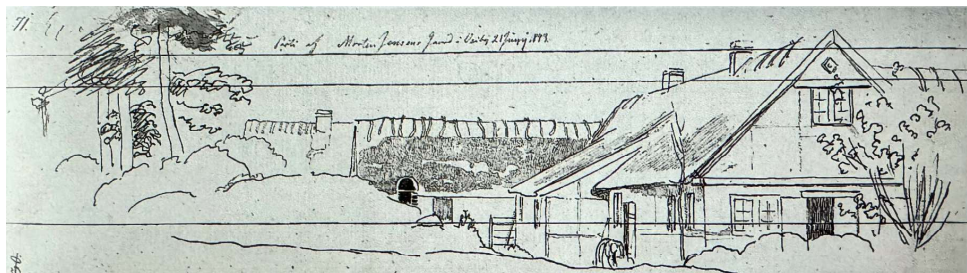 71.
Parti af Morten Jensens Gaard i Veiby 21 Juny 1843.